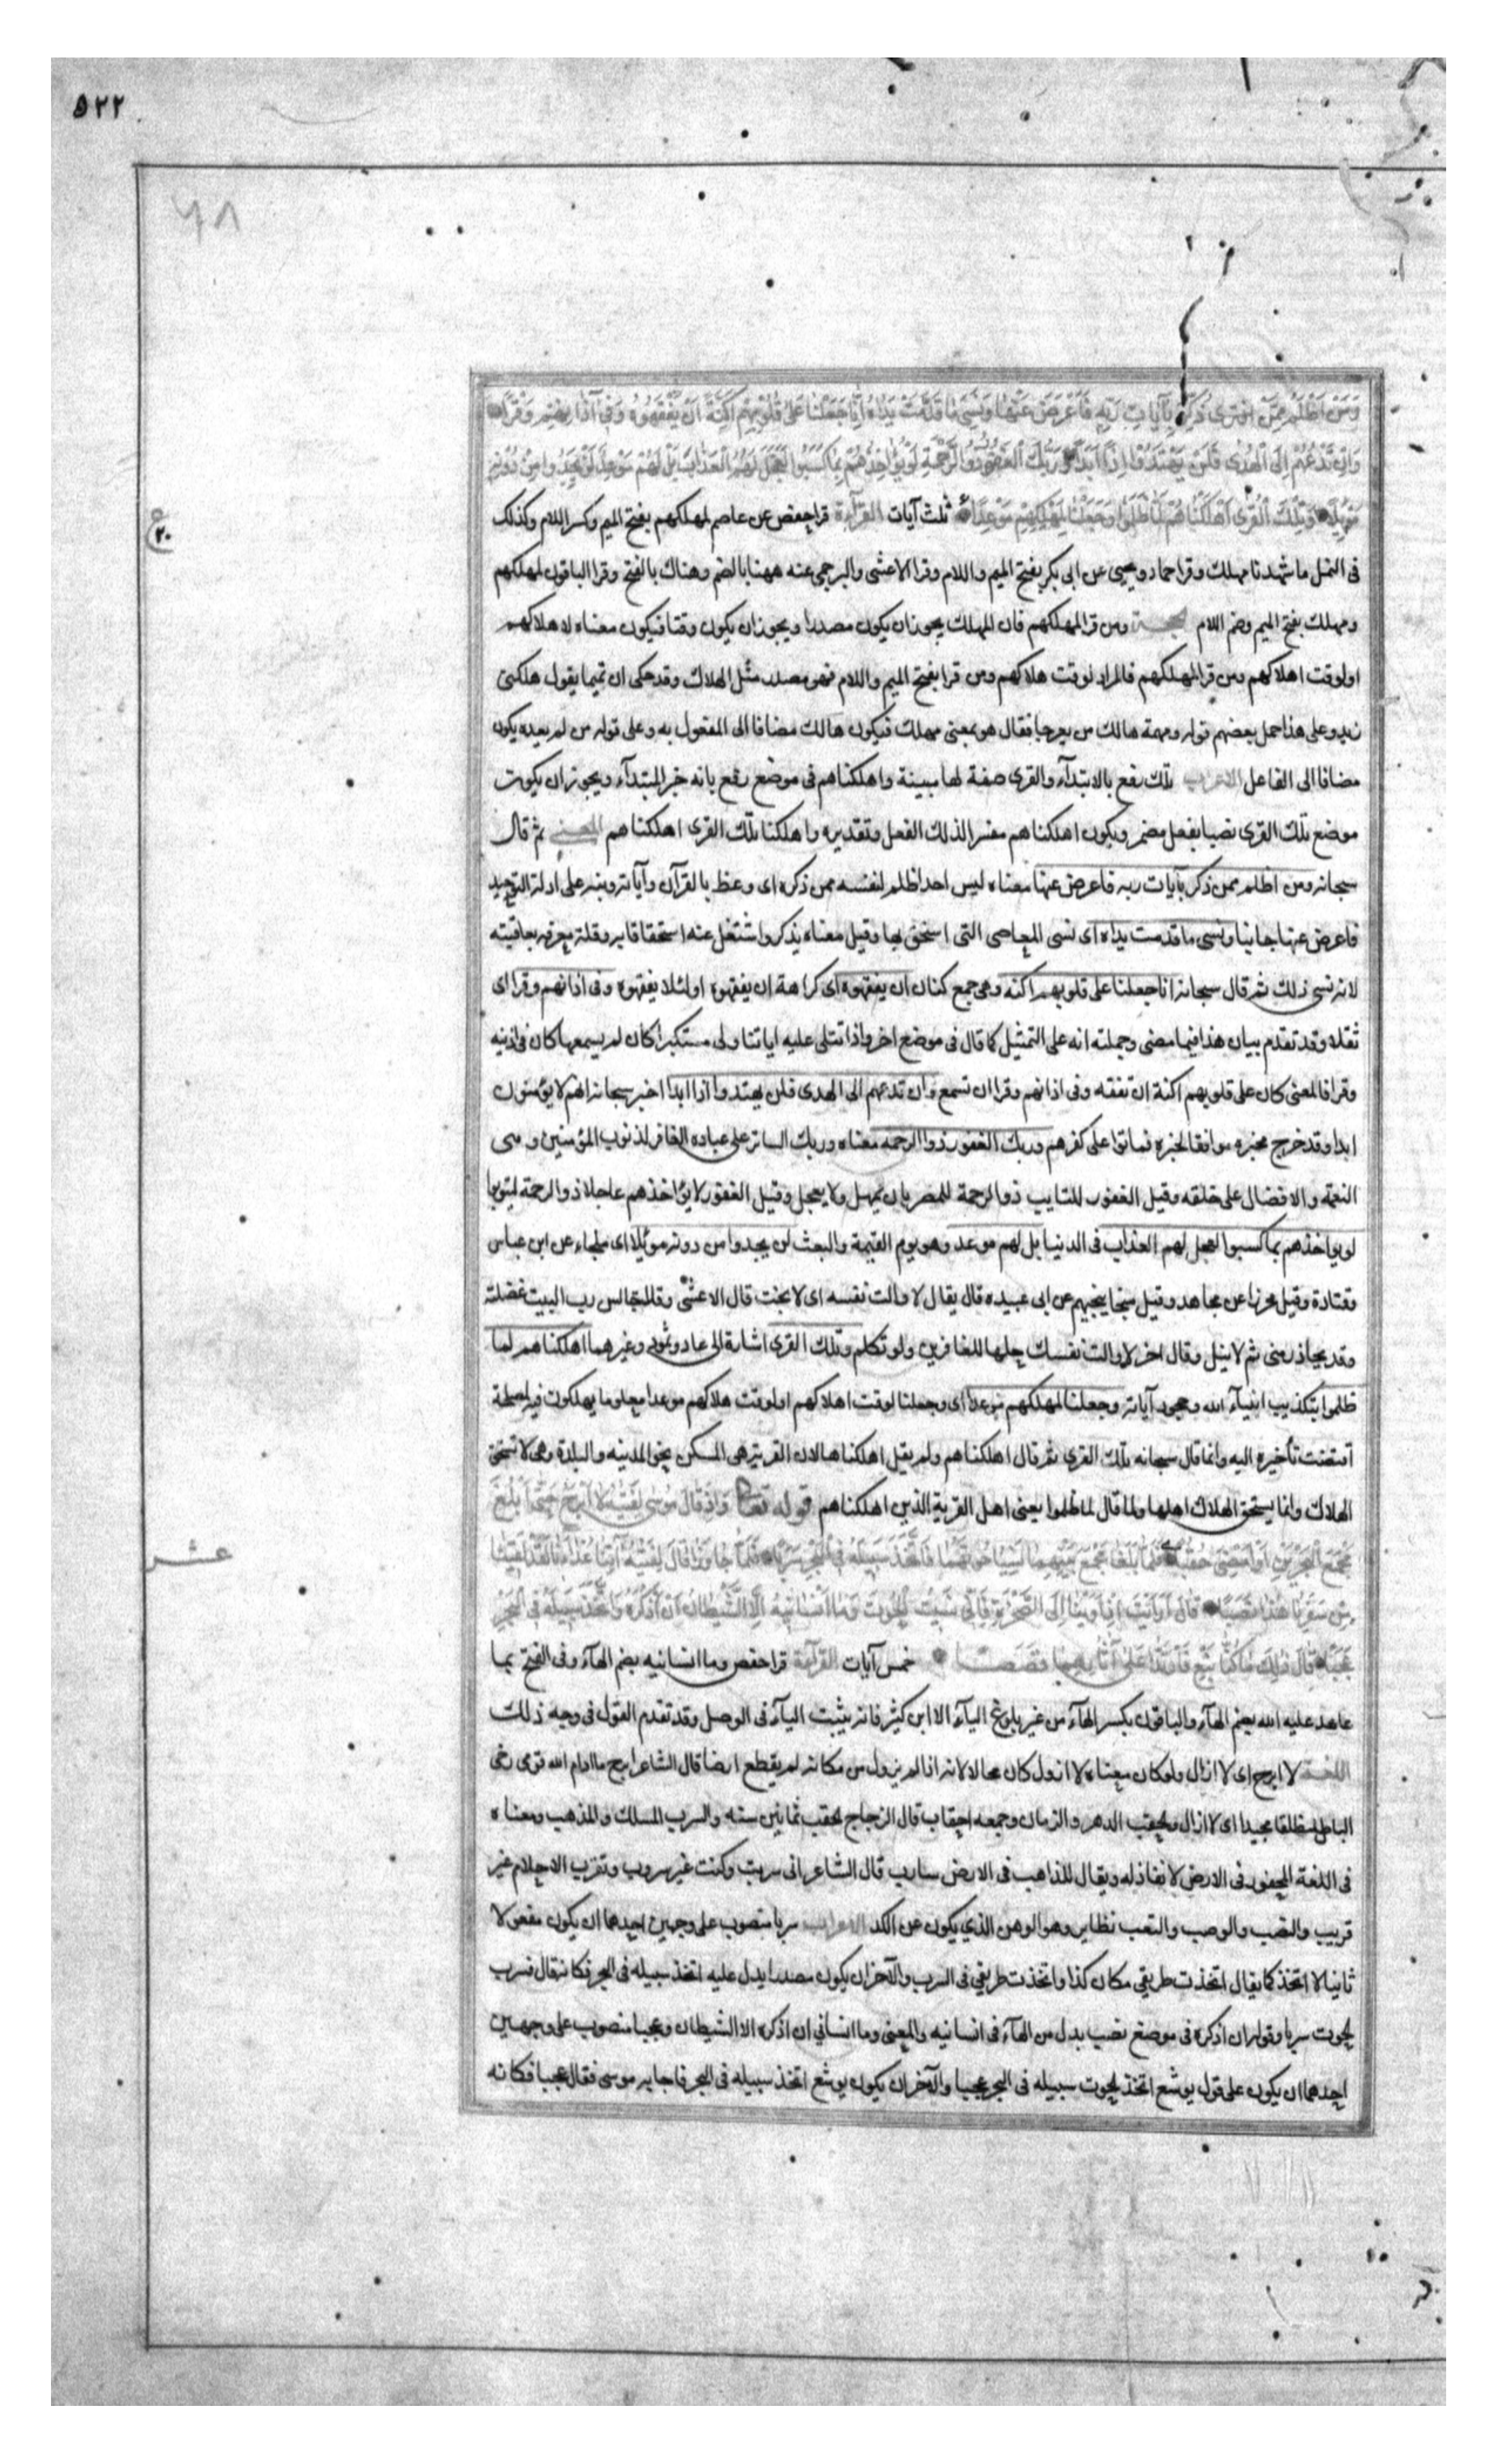 ٥٢٢
٦٨
وَمَنْ اَظْلَمُ مِمَّنْ ذُكِّرَ بِآيَاتِ رَبِّهِ فَاَعْرَضَ عَنْهَا وَنَسِيَ مَا قَدَّمَتْ يَدَاهُ اِنَّا جَعَلْنَا عَلَى قُلُوبِهِمْ اَكِنَّةً اَنْ يَفْقَهُوهُ وَفِي آذَانِهِمْ وَقْرًا
وَاِنْ تَدْعُهُمْ اِلَى الْهُدَى فَلَنْ يَهْتَدُوا اِذًا اَبَدًا وَرَبُّكَ الْغَفُورُ ذُو الرَّحْمَةِ لَوْ يُؤَاخِذُهُمْ بِمَا كَسَبُوا لَعَجَّلَ لَهُمُ الْعَذَابَ بَلْ لَهُمْ مَوْعِدٌ لَنْ يَجِدُوا مِنْ دُونِهِ
مَوْئِلًا وَتِلْكَ الْقُرَى اَهْلَكْنَاهُمْ لَمَّا ظَلَمُوا وَجَعَلْنَا لِمَهْلِكِهِمْ مَوْعِدًا ثلث آيات القرآءة قرا حفص عن عاصم لمهلكهم بفتح الميم وكسر اللام وكذلك
٢٠
فى النمل ما شهدنا مهلك وقرا حماد ويحيى عن ابى بكر بفتح الميم واللام وقرا الاعشى والبرجمى عنه ههنا بالضم وهناك بالفتح وقرا الباقون لمهلكهم
ومهلك بفتح الميم وضم اللام الحجة ومن قرا لمهلكهم فان المهلك يجوز ان يكون مصدرا ويجوز ان يكون وقتا فيكون معناه لاهلاكهم
او لوقت اهلاكهم ومن قرا لمهلكهم فالمراد لوقت هلاكهم ومن قرا بفتح الميم واللام فهو مصدر مثل الهلاك وقد حكى ان تميما يقول هلكنى
زيد وعلى هذا حمل بعضهم قوله ومهمة هالك من تعرجا فقال هو بمعنى مهلك فيكون هالك مضافا الى المفعول به وعلى قوله من لم يعده يكون
مضافا الى الفاعل الاعراب تلك رفع بالابتدآء والقرى صفة لها مبينة واهلكناهم فى موضع رفع بانه خبر المبتدآء ويجوز ان يكون
موضع تلك القرى نصبا بفعل مضمر ويكون اهلكناهم مفسرا لذلك الفعل وتقديره واهلكنا تلك القرى اهلكناهم المعنى ثم قال
سبحانه ومن اظلم ممن ذكر بآيات ربه فاعرض عنها معناه ليس احد اظلم لنفسه ممن ذكره اى وعظ بالقرآن وآياته ونبه على ادلة التوحيد
فاعرض عنها جانبا ونسى ما قدمت يداه اى نسى المعاصى التى استحق بها وقيل معناه يذكر واشتغل عنه استخفافا به وقلة معرفه بعاقبته
لانه نسى ذلك ثم قال سبحانه انا جعلنا على قلوبهم اكنه وهى جمع كنان ان يفقهوه اى كراهة ان يفقهوه او لئلا يفقهوه وفى اذانهم وقرا اى
ثقلا وقد تقدم بيان هذا فيما مضى وجملته انه على التمثيل كما قال فى موضع اخر واذا تتلى عليه اياتنا ولى مستكبرا كان لم يسمعها كان فى اذنيه
وقرا فالمعنى كان على قلوبهم اكنة ان تفقه وفى اذانهم وقرا ان تسمع وان تدعهم الى الهدى فلن يهتدوا اذا ابدا اخبر سبحانه انهم لا يؤمنون
ابدا وقد خرج مخبره موافقا لخبره فماتوا على كفرهم وربك الغفور ذوا الرحمه معناه وربك الساتر على عباده الغافر لذنوب المؤمنين ومى
النعمة والافضال على خلقه وقيل الغفور للتايب ذو الرحمة للمصر بان يمهل ولا يعجل وقيل الغفور لا يؤاخذهم عاجلا ذو الرحمة ليتوبوا
لو يواخذهم بما كسبوا لعجل لهم العذاب فى الدنيا بل لهم موعد وهو يوم القيمة والبعث لن يجدوا من دونه موئلا اى ملجاء عن ابن عباس
وقتادة وقيل محرزا عن مجاهد وقيل منجا ينجيهم عن ابى عبيده قال يقال لا والت نفسه اى لا نجت قال الاعشى وقد اخالس رب البيت غفلته
وقد يحاذر منى ثم لا يئل وقال اخر لا والت نفسك خليتها للعامرين ولم تكلم وتلك القرى اشارة الى عاد وثمود وغيرهما اهلكناهم لما
ظلموا بتكذيب انبيآء الله وجحود آياته وجعلنا لمهلكهم موعدا اى وجعلنا لوقت اهلاكهم او لوقت هلاكهم موعدا معلوما يهلكون فيه لمصلحة
اقتضت تأخيره اليه وانما قال سبحانه تلك القرى ثم قال اهلكناهم ولم يقل اهلكناها لان القرية هى المسكن نحو المدينه والبلدة وهى لا تستحق
الهلاك وانما يستحق الهلاك اهلها ولذا قال لما ظلموا يعنى اهل القرية الذين اهلكناهم قوله تعالى وَاِذْ قَالَ مُوسَى لِفَتَيهُ لَا اَبْرَحُ حَتَّى اَبْلُغَ
مَجْمَعَ الْبَحْرَيْنِ اَوْ اَمْضِيَ حُقُبًا فَلَمَّا بَلَغَا مَجْمَعَ بَيْنِهِمَا نَسِيَا حُوتَهُمَا فَاتَّخَذَ سَبِيلَهُ فِي الْبَحْرِ سَرَبًا فَلَمَّا جَاوَزَا قَالَ لِفَتَيهُ آتِنَا غَدَآءَنَا لَقَدْ لَقِينَا
عشر
مِنْ سَفَرِنَا هَذَا نَصَبًا قَالَ اَرَاَيْتَ اِذْ اَوَيْنَا اِلَى الصَّخْرَةِ فَاِنِّي نَسِيتُ الْحُوتَ وَمَا اَنْسَانِيهُ اِلَّا الشَّيْطَانُ اَنْ اَذْكُرَهُ وَاتَّخَذَ سَبِيلَهُ فِي الْبَحْرِ
عَجَبًا قَالَ ذَلِكَ مَا كُنَّا نَبْغِ فَارْتَدَّا عَلَى آثَارِهِمَا قَصَصًا خمس آيات القرآءة قرا حفص وما انسانيه بضم الهآء وفى الفتح بما
عاهد عليه الله بضم الهآء والباقون بكسر الهآء من غير بلوغ اليآء الا ابن كثير فانه يثبت اليآء فى الوصل وقد تقدم القول فى وجه ذلك
اللغة لا ابرح اى لا ازال ولو كان معناه لا ازول كان محالا لانه اذا لم يزول من مكانه لم يقطع ارضا قال الشاعر ابرح ما ادام الله قومى رخى
البال منطلقا مجيدا اى لا ازال والحقب الدهر والزمان وجمعه احقاب قال الزجاج الحقب ثمانين سنه والسرب المسلك والمذهب ومعناه
فى اللغة المحفور فى الارض لا نفاذ له ويقال للذاهب فى الارض سارب قال الشاعر انى سربت وكنت غير سروب وتقرب الاحلام غير
قريب والنصب والوصب والتعب نظاير وهو الوهن الذي يكون عن الكد الاعراب سربا منصوب على وجهين احدهما ان يكون مفعولا
ثانيا لاتخذ كما يقال اتخذت طريقى مكان كذا واتخذت طريقي فى السرب والآخر ان يكون مصدرا يدل عليه اتخذ سبيله فى البحر فكانه قال فسرب
الحوت سربا وقوله ان اذكره فى موضع نصب بدل من الهآء فى انسانيه والمعنى وما انسانى ان اذكره الا الشيطان وعجبا منصوب على وجهين
احدهما ان يكون على قول يوشع اتخذ الحوت سبيله فى البحر عجبا والآخر ان يكون يوشع اتخذ سبيله فى البحر فاجابه موسى فقال عجبا فكانه